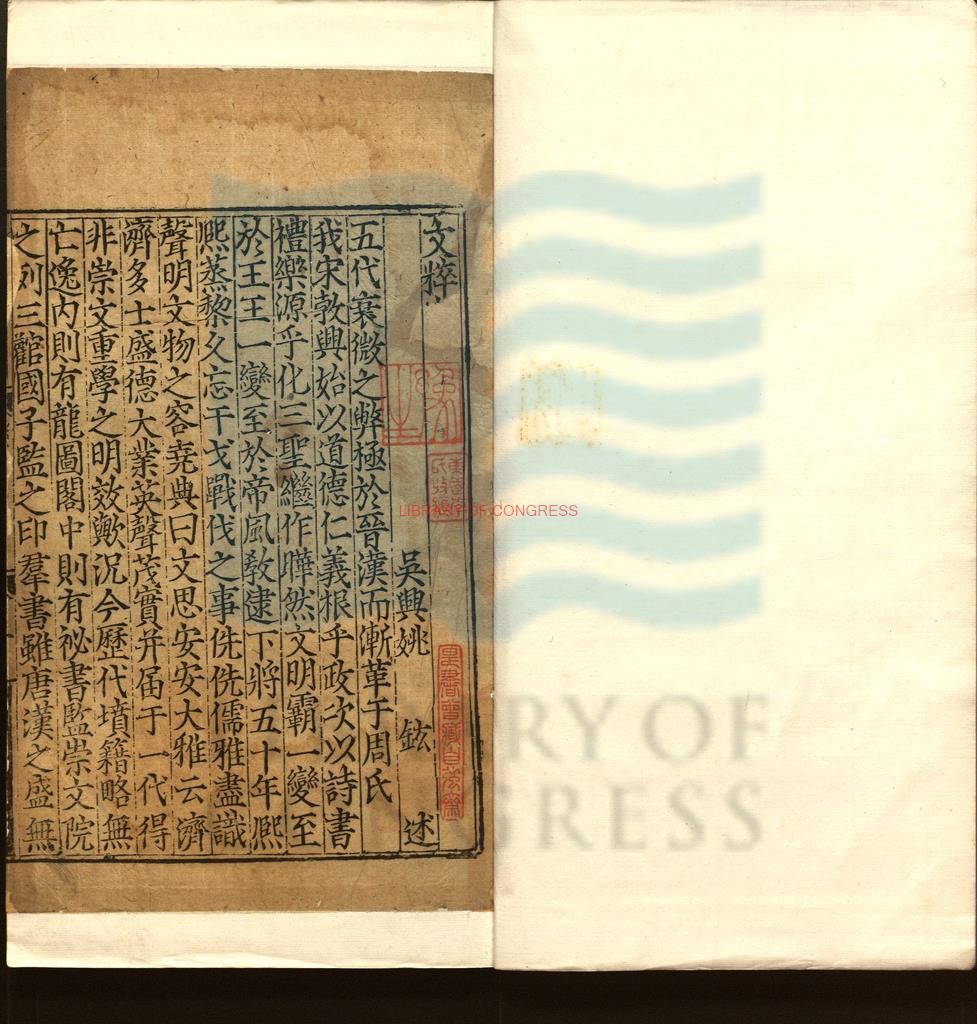 文粹
吳興姚 鉉 述
五代衰微之弊極於晉漢而漸革于周氏
我宋敦興始以道德仁義根乎政次以詩書
禮樂源乎化三聖繼作曄然文明霸一變至
於王王一變至於帝風敎逮下將五十年熈
熈蒸黎久忘干戈戰伐之事侁侁儒雅盡識
聲明文物之容堯典曰文思安安大雅云濟
濟多士盛德大業英聲茂實并届于一代得
非崇文重學之明效歟況今歷代墳籍略無
亡逸内則有龍圖閣中則有祕書監崇文院
之列三舘國子監之印羣書雖唐漢之盛無
LIBRARY OF CONGRESS
RY OF
GRESS